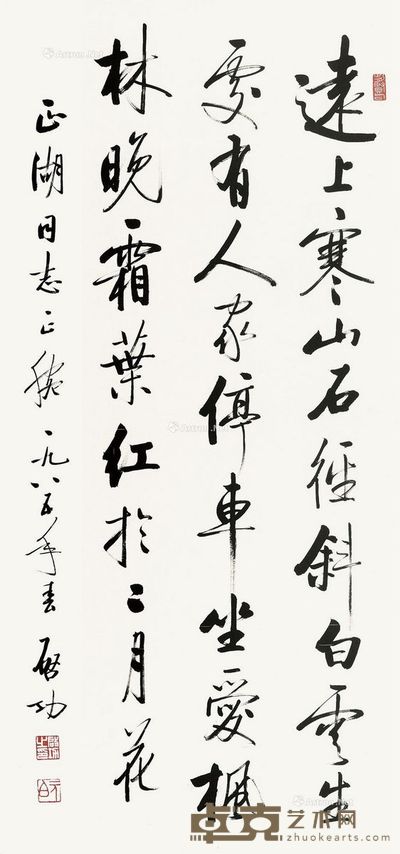 遠上寒山石徑斜白雲生
處有人家停車坐愛楓
林晚霜葉紅於二月花
正湖同志正腕 一九八五年春 啓功
卓克艺术网
zhuokearts.com